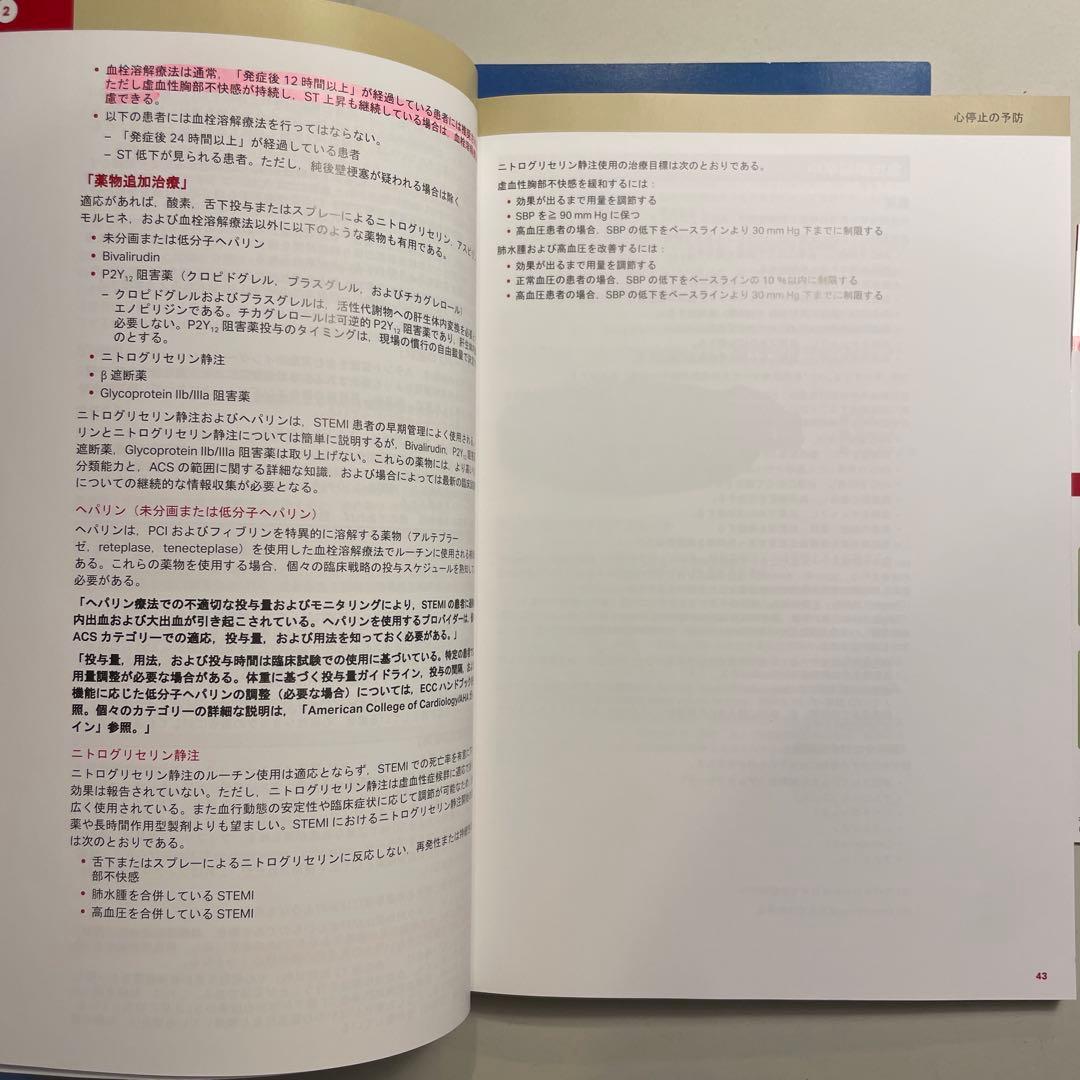 2
• 血栓溶解療法は通常，「発症後 12 時間以上」が経過している患者には
ただし虚血性胸部不快感が持続し，ST 上昇も継続している場合は，血栓溶解
慮できる。
• 以下の患者には血栓溶解療法を行ってはならない。
– 「発症後 24 時間以上」が経過している患者
– ST 低下が見られる患者。ただし，純後壁梗塞が疑われる場合は除く
「薬物追加治療」
適応があれば，酸素，舌下投与またはスプレーによるニトログリセリン，アスピリ
モルヒネ，および血栓溶解療法以外に以下のような薬物も有用である。
• 未分画または低分子ヘパリン
• Bivalirudin
• P2Y₁₂ 阻害薬（クロピドグレル，プラスグレル，およびチカグレロール）
– クロピドグレルおよびプラスグレルは，活性代謝物への肝生体内変換を必要と
エノピリジンである。チカグレロールは可逆的 P2Y₁₂ 阻害薬であり，肝生体内
必要しない。P2Y₁₂ 阻害薬投与のタイミングは，現場の慣行の自由裁量で
のとする。
• ニトログリセリン静注
• β 遮断薬
• Glycoprotein IIb/IIIa 阻害薬
ニトログリセリン静注およびヘパリンは，STEMI 患者の早期管理によく使用される。
リンとニトログリセリン静注については簡単に説明するが，Bivalirudin，P2Y₁₂ 阻害
遮断薬，Glycoprotein IIb/IIIa 阻害薬は取り上げない。これらの薬物には，より高い
分類能力と，ACS の範囲に関する詳細な知識，および場合によっては最新の臨床試験
についての継続的な情報収集が必要となる。
ヘパリン（未分画または低分子ヘパリン）
ヘパリンは，PCI およびフィブリンを特異的に溶解する薬物（アルテプラー
ゼ，reteplase，tenecteplase）を使用した血栓溶解療法でルーチンに使用される
ある。これらの薬物を使用する場合，個々の臨床戦略の投与スケジュールを熟知して
必要がある。
「ヘパリン療法での不適切な投与量およびモニタリングにより，STEMI の患者に
内出血および大出血が引き起こされている。ヘパリンを使用するプロバイダーは，
ACS カテゴリーでの適応，投与量，および用法を知っておく必要がある。」
「投与量，用法，および投与時間は臨床試験での使用に基づいている。特定の患者で
用量調整が必要な場合がある。体重に基づく投与量ガイドライン，投与の間隔，
機能に応じた低分子ヘパリンの調整（必要な場合）については，ECC ハンドブック
照。個々のカテゴリーの詳細な説明は，「American College of Cardiology/AHA ガ
イン」参照。」
ニトログリセリン静注
ニトログリセリン静注のルーチン使用は適応とならず，STEMI での死亡率を有意に
効果は報告されていない。ただし，ニトログリセリン静注は虚血性症候群に適応
広く使用されている。また血行動態の安定性や臨床症状に応じて調節が可能なため，
薬や長時間作用型製剤よりも望ましい。STEMI におけるニトログリセリン静注開始
は次のとおりである。
• 舌下またはスプレーによるニトログリセリンに反応しない，再発性または持続性
部不快感
• 肺水腫を合併している STEMI
• 高血圧を合併している STEMI
心停止の予防
ニトログリセリン静注使用の治療目標は次のとおりである。
虚血性胸部不快感を緩和するには：
• 効果が出るまで用量を調節する
• SBP を≧ 90 mm Hg に保つ
• 高血圧患者の場合，SBP の低下をベースラインより 30 mm Hg 下までに制限する
肺水腫および高血圧を改善するには：
• 効果が出るまで用量を調節する
• 正常血圧の患者の場合，SBP の低下をベースラインの 10 %以内に制限する
• 高血圧患者の場合，SBP の低下をベースラインより 30 mm Hg 下までに制限する
43